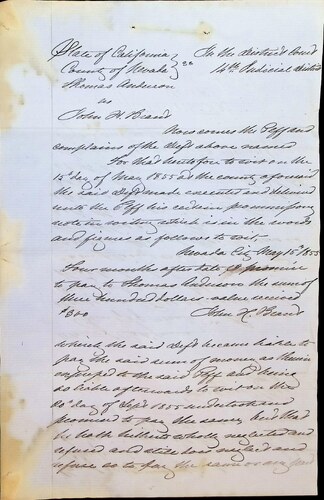 State of California } ss In the district Court
County of Nevada } 14th Judicial district
Thomas Anderson
vs
John H. Beard
Now comes the Plff and
complains of the deft above named
For that heretofore to wit on the
15th day of May 1855 at the county aforesaid
the said Deft made executed and delivered
unto the Plff his certain promissory
note in writing which is in the words
and figures as follows to wit.
Nevada City May 15th 1855
Four months after date I promise
to pay to Thomas Anderson the sum of
three hundred dollars value received
$300 John H. Beard
which the said Deft became liable to
pay the said sum of money as therein
to the said Plff and being
so liable afterwards to wit on the
20th day of Sept 1855 undertook and
promised to pay the same, but that
he hath hitherto wholly neglected and
refused and still does neglect and
refuse so to pay the same or any part